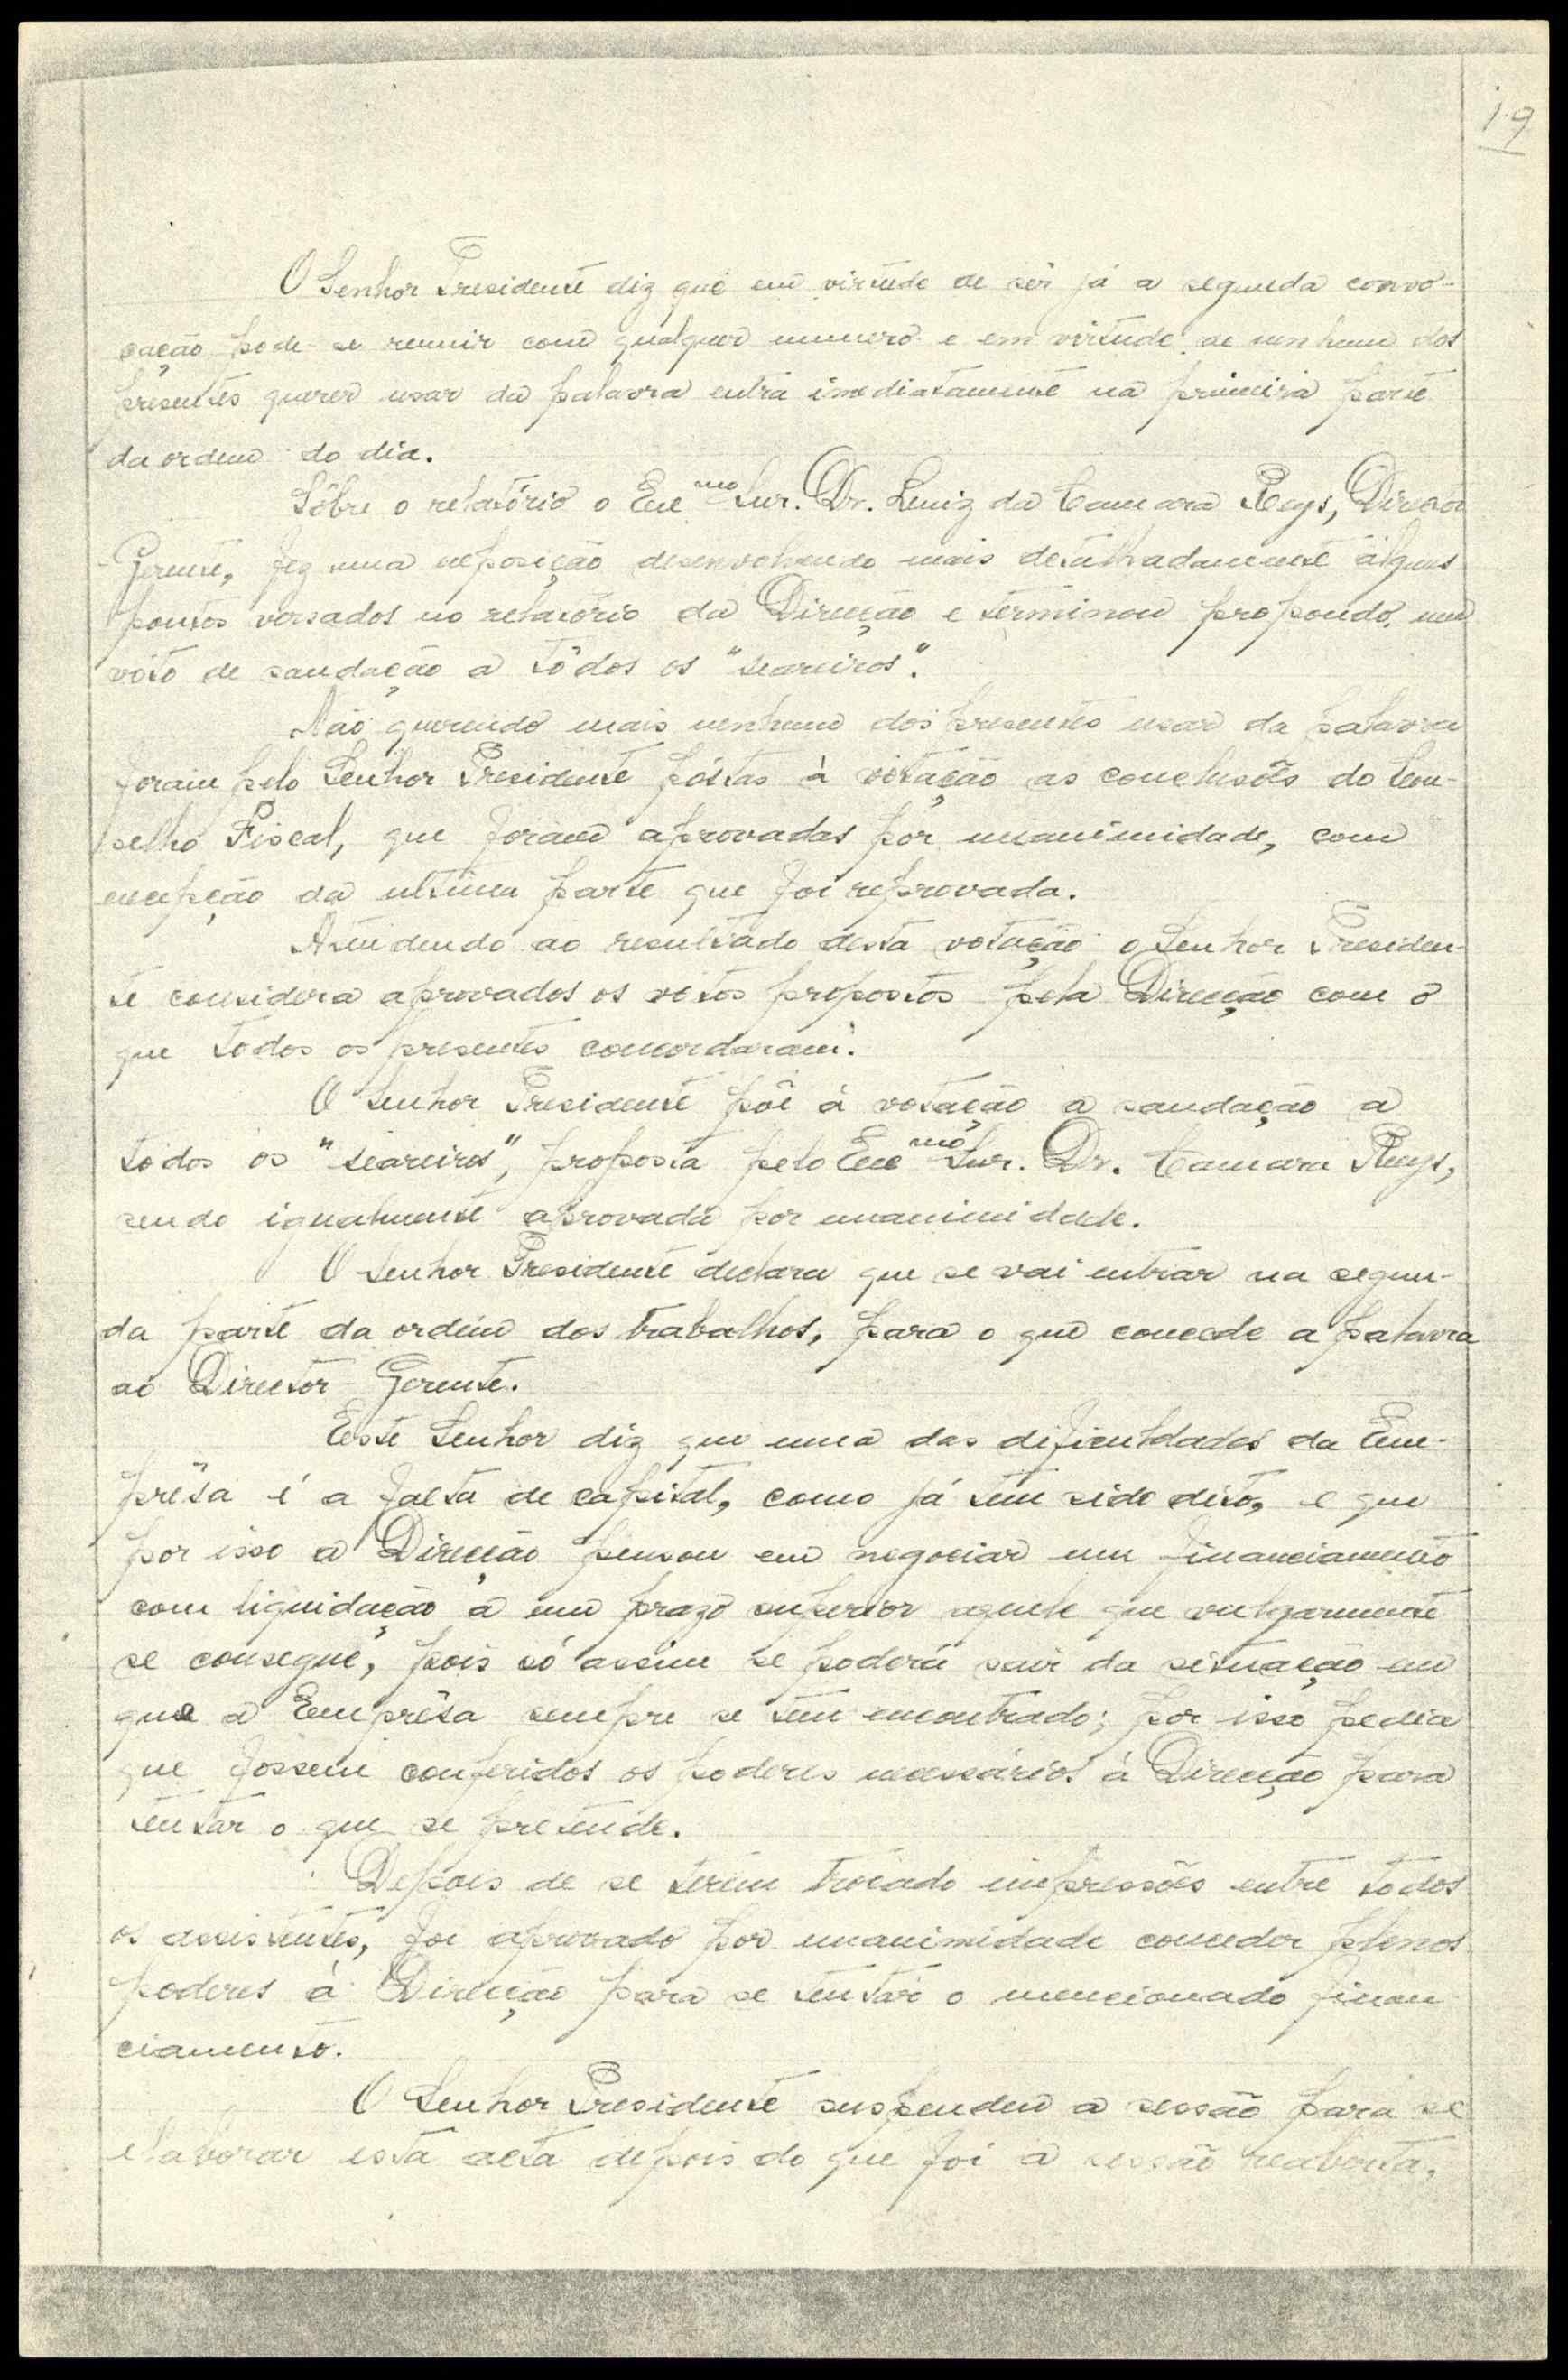 19
O Senhor Presidente diz que em virtude de sêr já a segunda convo-
cação pode-se reunir com qualquer numero e em virtude de nenhum dos
presentes querer usar da palavra entra imediatamente na primeira parte
da ordem do dia.
Sôbre o relatório o Exc.mo Snr. Dr. Luiz da Camara Reys, Director
-Gerente, fez uma exposição desenvolvendo mais detalhadamente alguns
pontos versados no relatório da Direcção e terminou propondo um
voto de saudação a todos os "seareiros".
Não querendo mais nenhum dos presentes usar da palavra
foram pelo Senhor Presidente póstas à votação as conclusões do Con-
selho Fiscal, que foram aprovadas por unanimidade, com
excepção da ultima parte que foi reprovada.
Atendendo ao resultado desta votação o Senhor Presiden-
te considera aprovados os votos propostos pela Direcção com o
que todos os presentes concordaram.
O Senhor Presidente põe à votação a saudação a
todos os "seareiros", proposta pelo Exc.mo Snr. Dr. Camara Reys,
sendo igualmente aprovada por unanimidade.
O Senhor Presidente declara que se vai entrar na segun-
da parte da ordem dos trabalhos, para o que concede a palavra
ao Director-Gerente.
Este Senhor diz que uma das dificuldades da Em-
prêsa é a falta de capital, como já tem sido dito, e que
por isso a Direcção pensou em negociar um financiamento
com liquidação a um prazo superior aquele que vulgarmente
se consegue, pois só assim se poderá sair da situação em
que a Emprêsa sempre se tem encontrado; por isso pedia
que fossem conferidos os poderes necessários à Direcção para
tentar o que se pretende.
Depois de se terem trocado impressões entre todos
os assistentes, foi aprovado por unanimidade conceder plenos
poderes à Direcção para se tentar o mencionado finan
ciamento.
O Senhor Presidente suspendeu a sessão para se
elaborar esta acta depois do que foi a sessão reaberta,